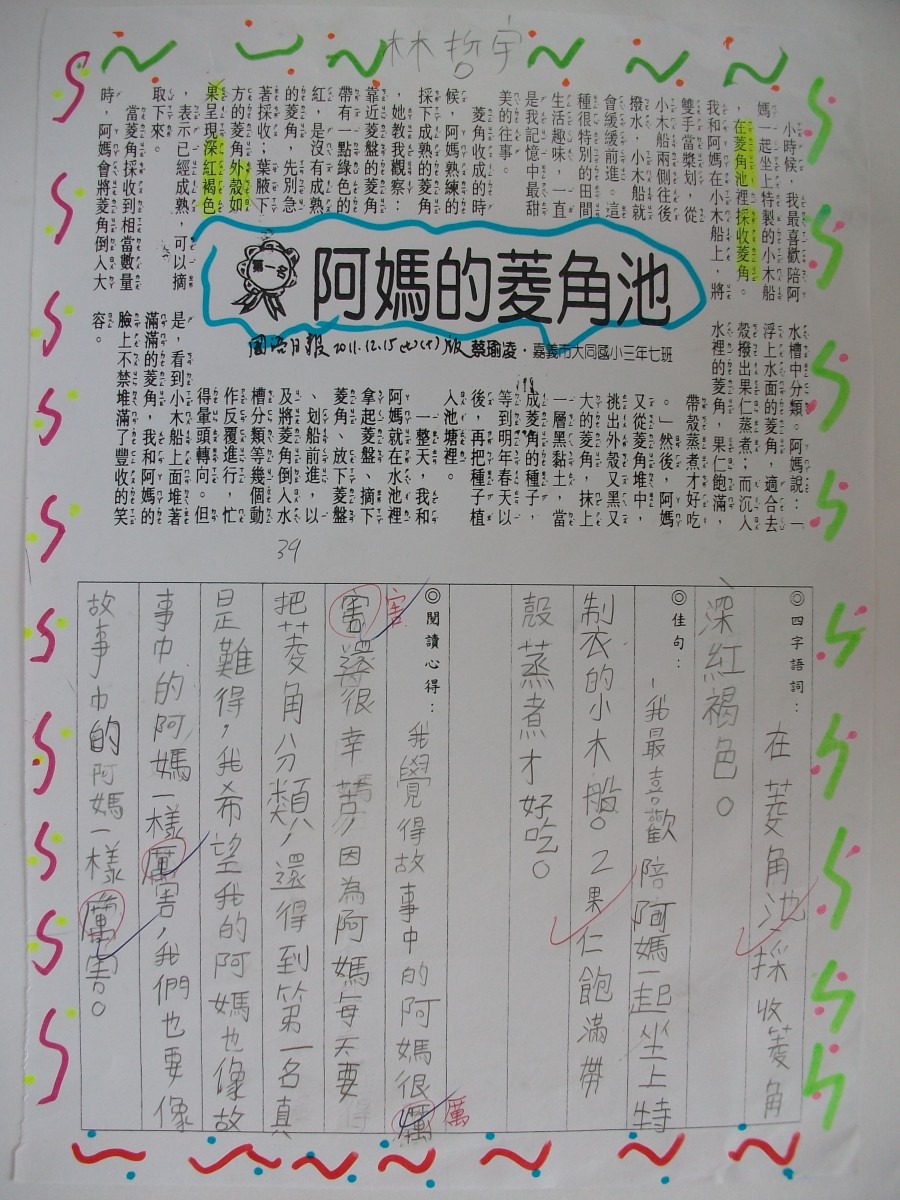 林哲宇
小時候，我最喜歡陪阿
媽一起坐上特製的小木船
，在菱角池裡採收菱角。
我和阿媽在小木船上，將
雙手當槳划，從
小木船兩側往後
撥水，小木船就
會緩緩前進。這
種很特別的田間
生活趣味，一直
是我記憶中最甜
美的往事。
菱角收成的時
候，阿媽熟練的
採下成熟的菱角
，她教我觀察：
靠近菱盤的菱角
帶有一點綠色的
紅，是沒有成熟
的菱角，先別急
著採收；葉腋下
方的菱角外殼如
果呈現深紅褐色
，表示已經成熟，可以摘
取下來。
當菱角採收到相當數量
時，阿媽會將菱角倒入大
第一名
阿媽的菱角池
國語日報 2011.12.15 版 蔡瑜凌・嘉義市大同國小三年七班
水槽中分類。阿媽說：「
浮上水面的菱角，適合去
殼撥出果仁蒸煮；而沉入
水裡的菱角，果仁飽滿，
帶殼蒸煮才好吃
。」然後，阿媽
又從菱角堆中，
挑出外殼又黑又
大的菱角，抹上
一層黑黏土，當
成菱角的種子，
等到明年春天以
後，再把種子植
入池塘裡。
一整天，我和
阿媽就在水池裡
拿起菱盤、摘下
菱角、放下菱盤
、划船前進，以
及將菱角倒入水
槽分類等幾個動
作反覆進行，忙
得暈頭轉向。但
是，看到小木船上面堆著
滿滿的菱角，我和阿媽的
臉上不禁堆滿了豐收的笑
容。
39
◎四字語詞：在菱角池採收菱角
深紅褐色。
◎佳句：1我最喜歡陪阿媽一起坐上特
制衣的小木船。2果仁飽滿帶
殼蒸煮才好吃。
◎閱讀心得：我覺得故事中的阿媽很厲
厲
害
害還很幸苦，因為阿媽每天要
把菱角分類，還得到第一名真
是難得，我希望我的阿媽也像故
事中的阿媽一樣厲害，我們也要像
故事中的阿媽一樣厲害。